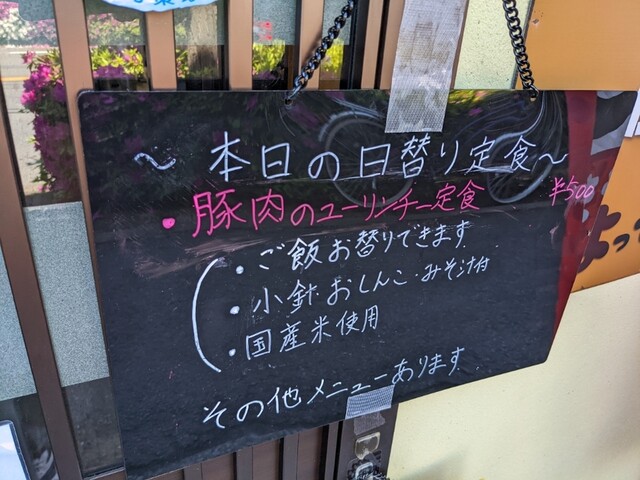 ~ 本日の日替り定食~
・豚肉のユーリンチー定食 ¥500
・ご飯お替りできます
・小針・おしんこ・みそ汁付
・国産米使用
その他メニューあります
よっ